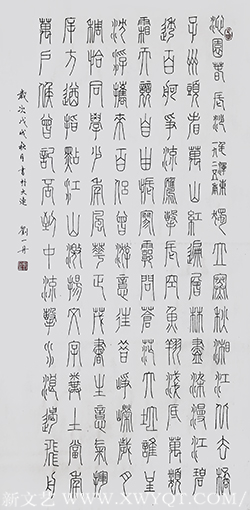 沁園春 長沙 毛澤東 一九二五年 獨立寒秋湘江北去橘
子洲頭看萬山紅遍層林盡染漫江碧
透百舸爭流鷹擊長空魚翔淺底萬類
霜天競自由悵寥廓問蒼茫大地誰主
沈浮攜來百侶曾遊憶往昔崢嶸歲月
稠恰同學少年風華正茂書生意氣揮
斥方遒指點江山激揚文字糞土當年
萬戶侯曾記否到中流擊水浪遏飛舟
歲次戊戌秋月書於大連
新文艺 WWW.XWYQT.COM